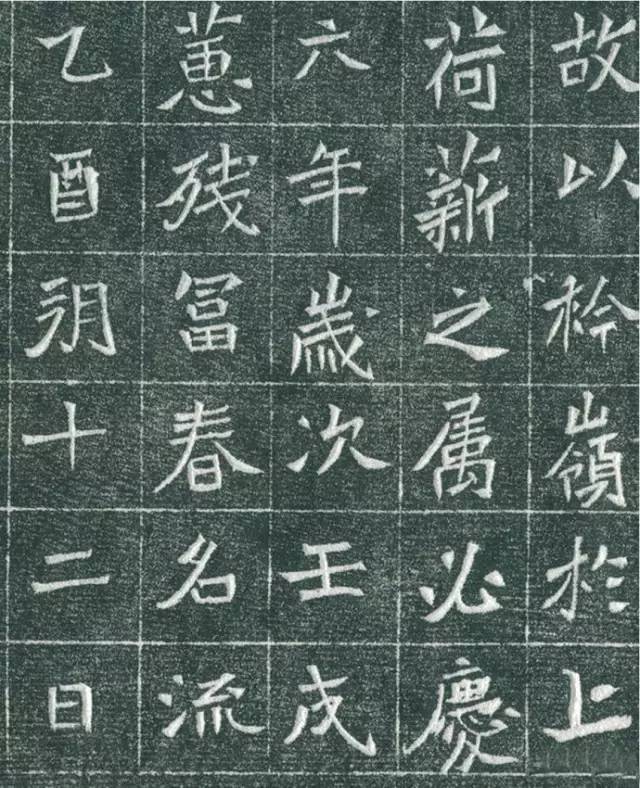 故以衿嶺於上
荷薪之属必慶
六年歲次壬戌
蕙残冨春名流
乙酉朔十二日